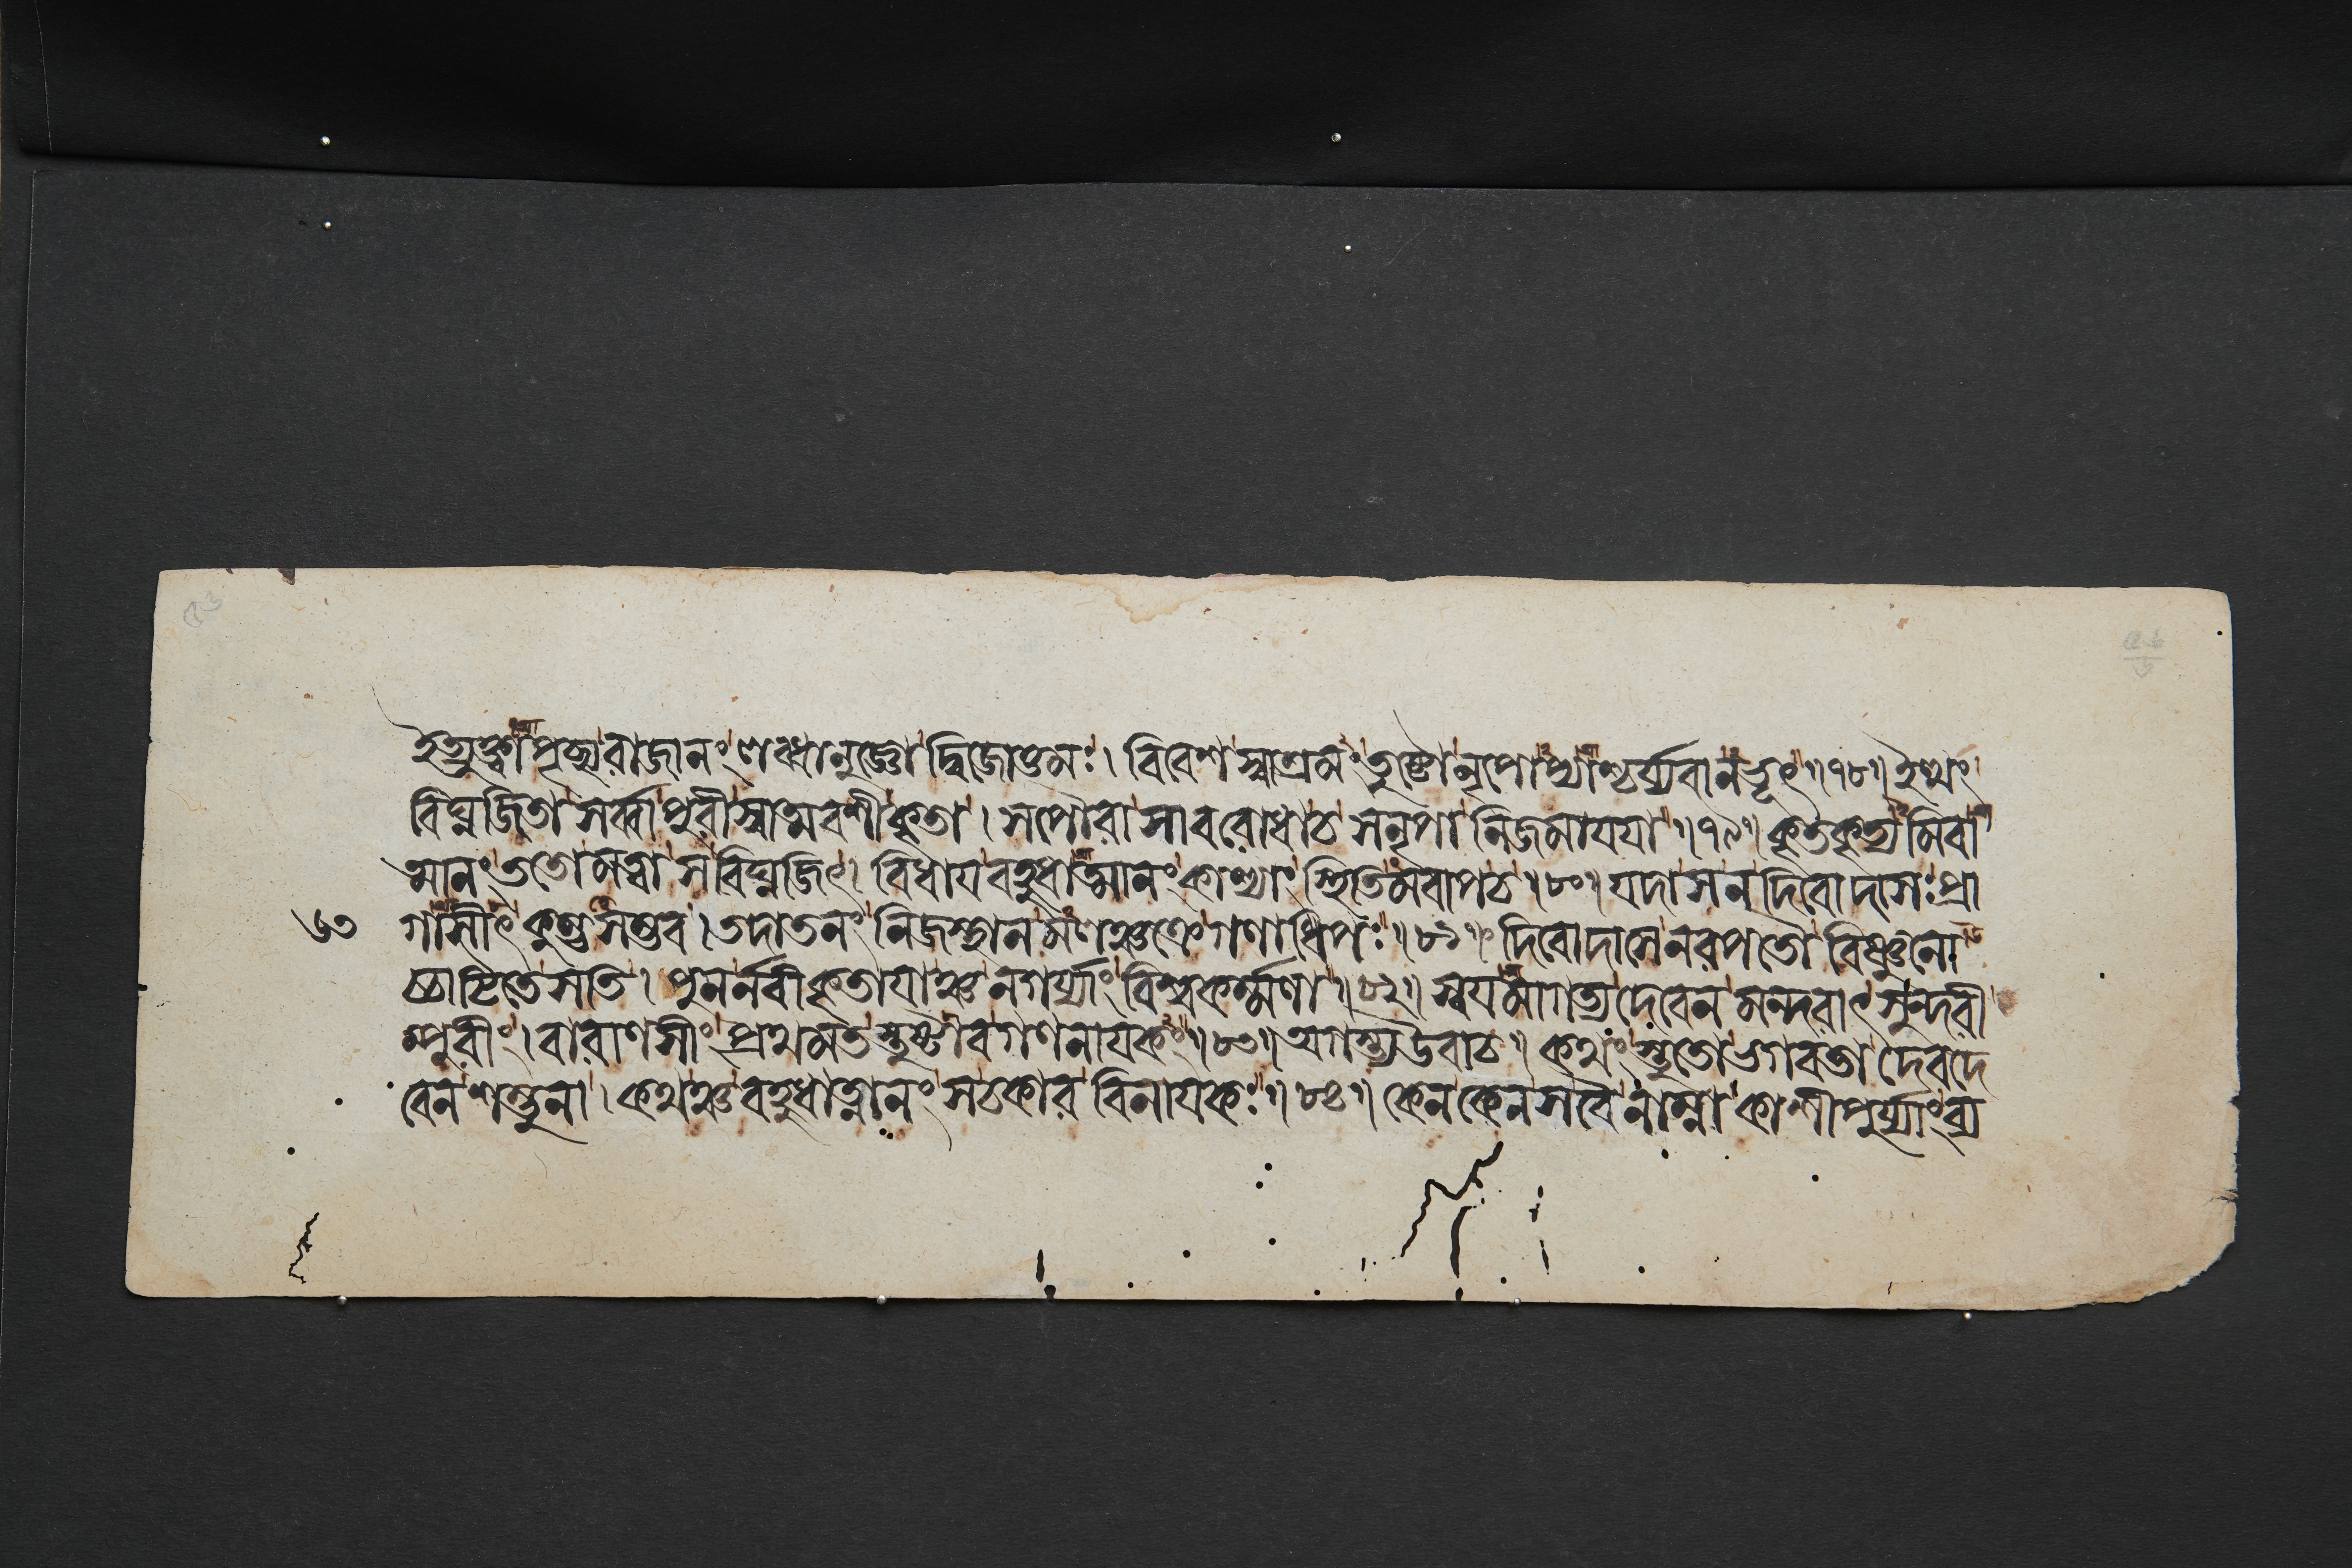 ইত্যুক্ত্বাপৃচ্ছ্য রাজানং লব্ধানুজ্ঞো দ্বিজোত্তমঃ। বিবেশ স্বাশ্রমং তুষ্টো নৃপোপ্যাশ্চর্য্যবানভূৎ॥৭৮॥ ইত্থং
বিঘ্নজিতা সর্ব্বা পুরী স্বাত্মবশীকৃতা। সপৌরা সাবরোধাচ সনৃপা নিজমাযযা॥৭৯॥ কৃতকৃত্যমিবা
ত্মানং ততো মত্বা স বিঘ্নজিৎ। বিধায বহুধাত্মানং কাশ্যাং স্থিতিমবাপচ॥৮০॥ যদা সন দিবোদাসঃ প্রা
৬৩
গাসীৎ কুম্ভসম্ভব। তদাতনং নিজস্থানমলঞ্চক্রে গণাধিপঃ॥৮১॥ দিবোদাসে নরপতৌ বিষ্ণুনো
চ্চাটিতে সতি। পুনর্নবীকৃতাযাঞ্চ নগর্য্যাং বিশ্বকর্ম্মণা॥৮২॥ স্বযমাগত্য দেবেন মন্দরাৎ সুন্দরী
ম্পুরীং। বারাণসীং প্রথমতস্তুষ্টুবে গণনাযকঃ॥৮৩॥ অগস্ত্য উবাচ॥ কথং স্তুতো ভগবতা দেবদে
বেন শম্ভুনা। কথঞ্চ বহুধাত্মানং সচকার বিনাযকঃ॥৮৪॥ কেন কেন স বৈ নাম্না কাশীপুর্য্যাং ব্য